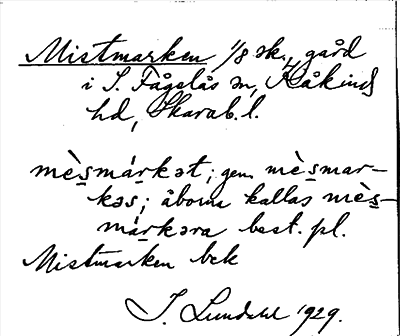 Mistmarken 1/8 sk., gård
i S. Fågelås sn, Kåkinds
hd, Skarab. l.
mèsmárkət; gen. mèsmar-
kəs; åborna kallas mès-
márkəra best. pl.
Mistmarken bek
I. Lundahl 1929.